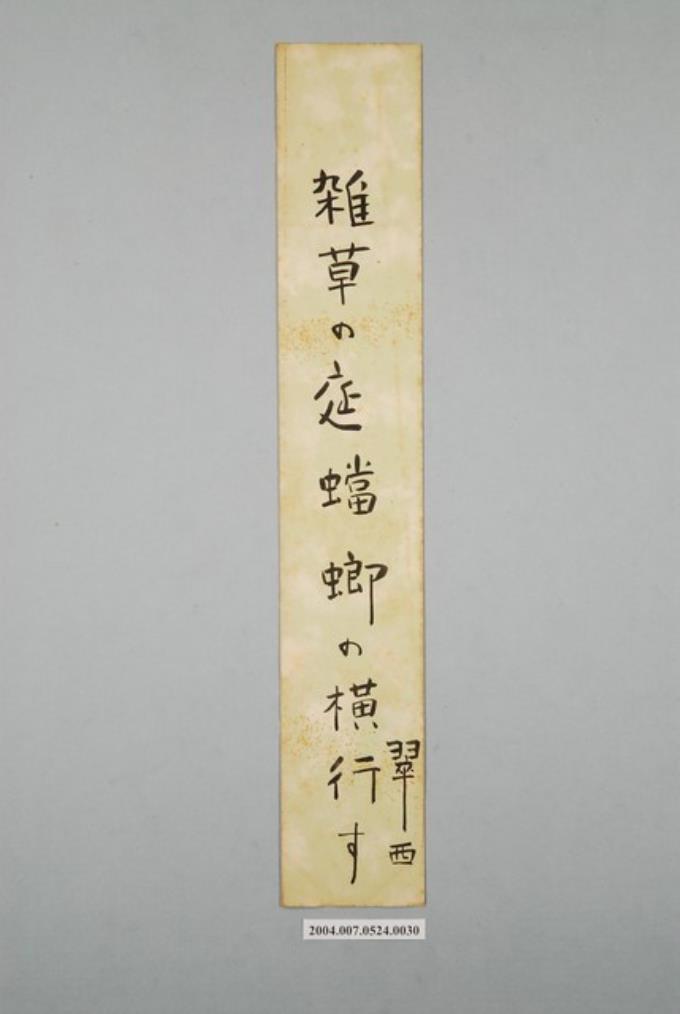 雑草の庭蟷螂の横行す
翠西
2004.007.0524.0030